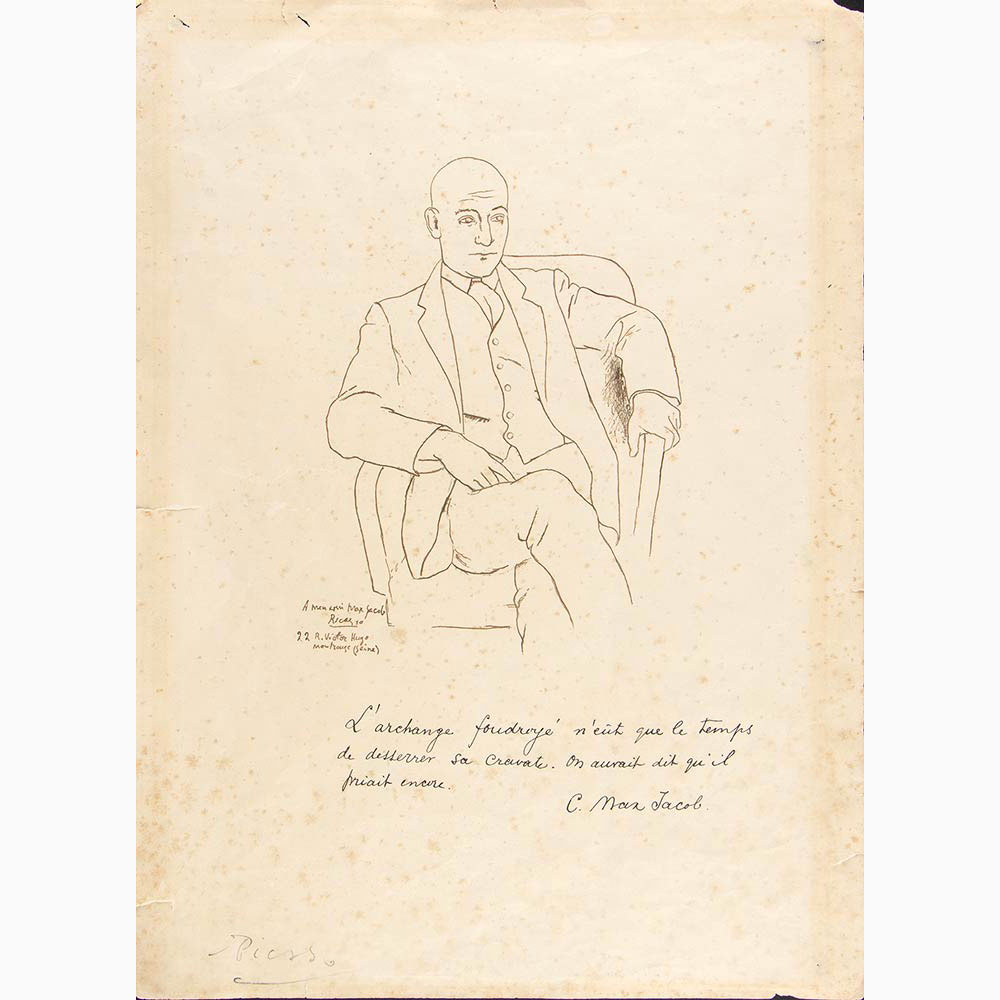 A mon ami Max Jacob
Picasso
22 R. Victor Hugo
Montrouge (Seine)
L'archange foudroyé n'eût que le temps
de desserrer sa cravate. On aurait dit qu'il
priait encore.
C. Max Jacob.
Picasso